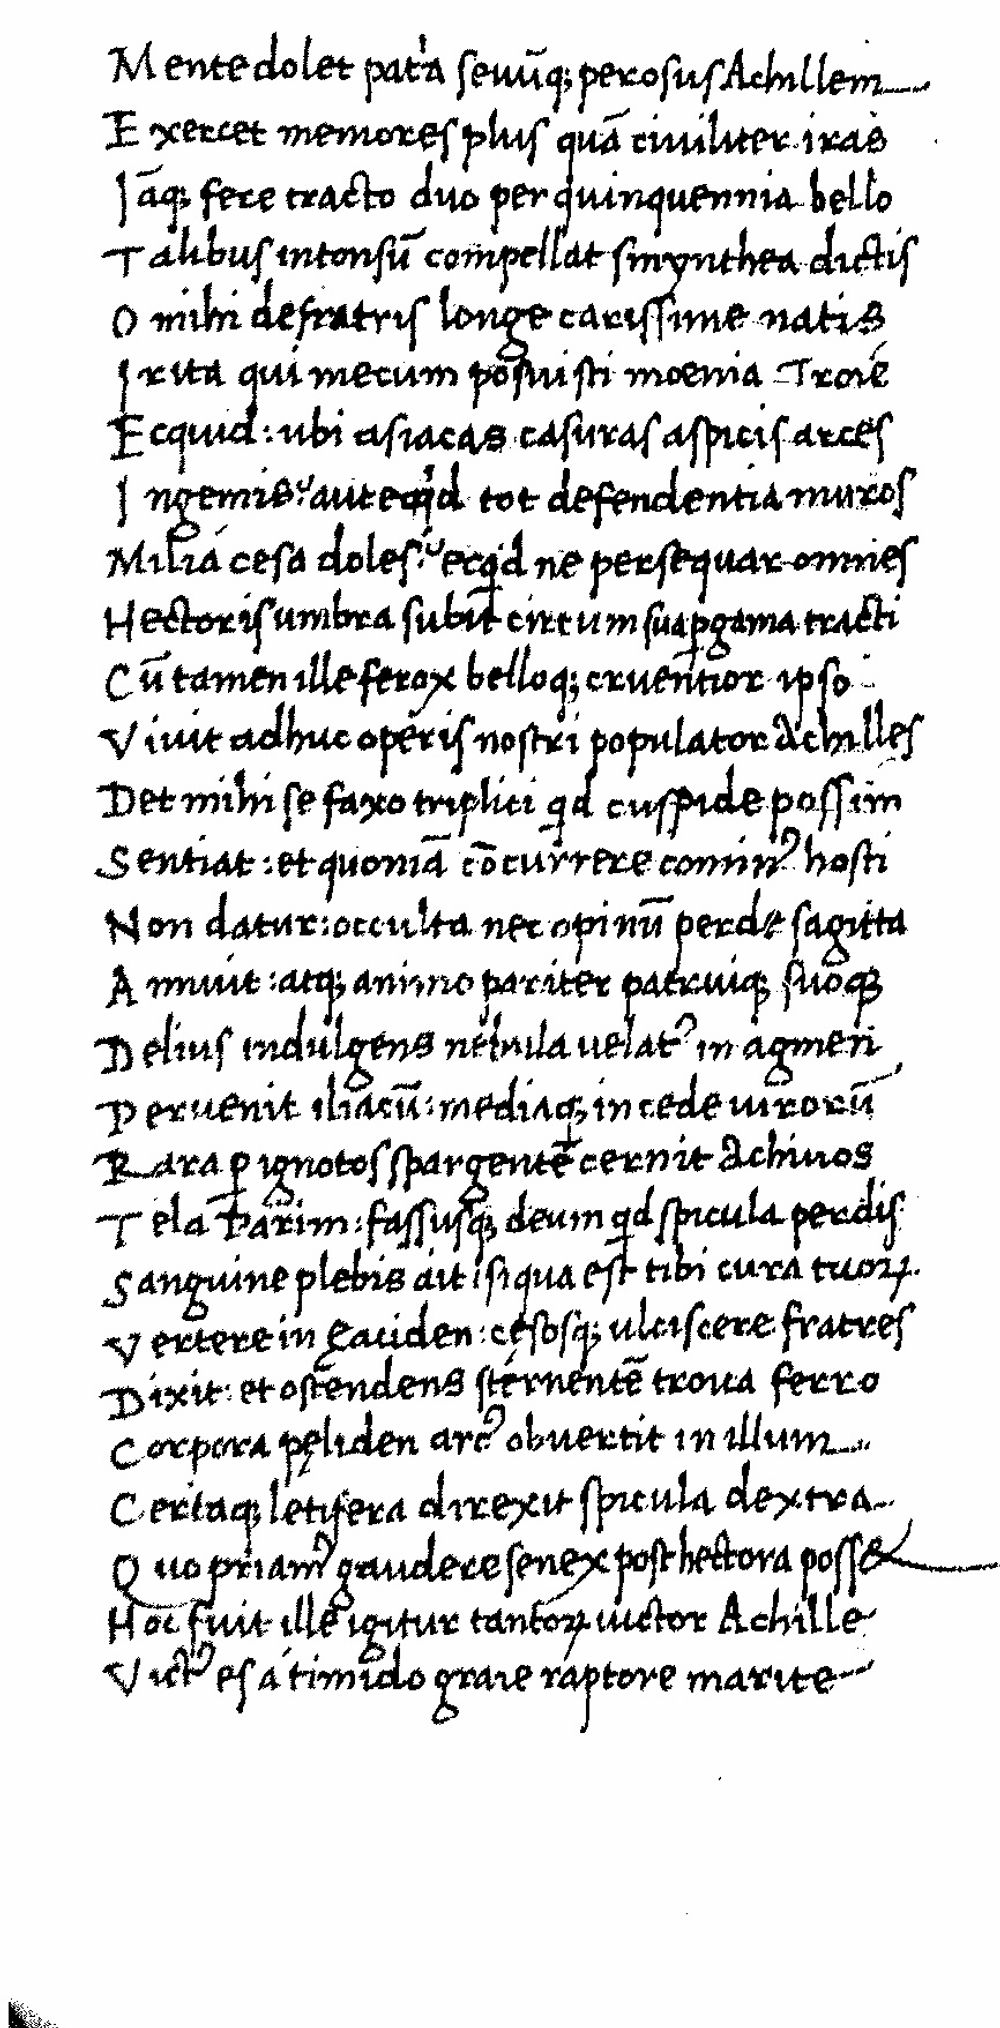 Mente dolet pat'a seuūq; perosus Achillem
Exercet memores plus quā ciuiliter iras
Iāq; fere tracto duo per quinquennia bello
Talibus intonsū compellat smynthea dictis
O mihi de fratris longe carissime natis
Irita qui mecum posuisti moenia Troie
Ecquid: ubi asiacas casuras aspicis arces
Ingemis? aut ecqd tot defendentia muros
Milia cesa doles? ecqd ne persequar omnes
Hectoris umbra subit circum sua pgama tracti
Cū tamen ille ferox belloq; cruentior ipso
Viuit adhuc operis nostri populator Achilles
Det mihi se faxo triplici qd cuspide possim
Sentiat: et quoniā cōcurrere comin⁹ hosti
Non datur: occulta nec opinū perde sagitta
Annuit: atq; animo pariter patruiq; suoq;
Delius indulgens nebula uelat⁹ in agmen
Peruenit iliacū: mediaq; in cede uirorū
Rara p ignotos spargentē cernit Achiuos
Tela Parim: fassusq; deum qd spicula perdis
Sanguine plebis ait: siqua est tibi cura tuoꝝ
Vertere in ęaciden: cęsosq; ulciscere fratres
Dixit: et ostēndens sternentē troua ferro
Corpora pęliden arc⁹ obuertit in illum
Certaq; letifera direxit spicula dextra
Quo priam⁹ gaudere senex post hectora posset
Hoc fuit ille igitur tantoꝝ uictor Achille
Vict⁹ es á timido graie raptore marite